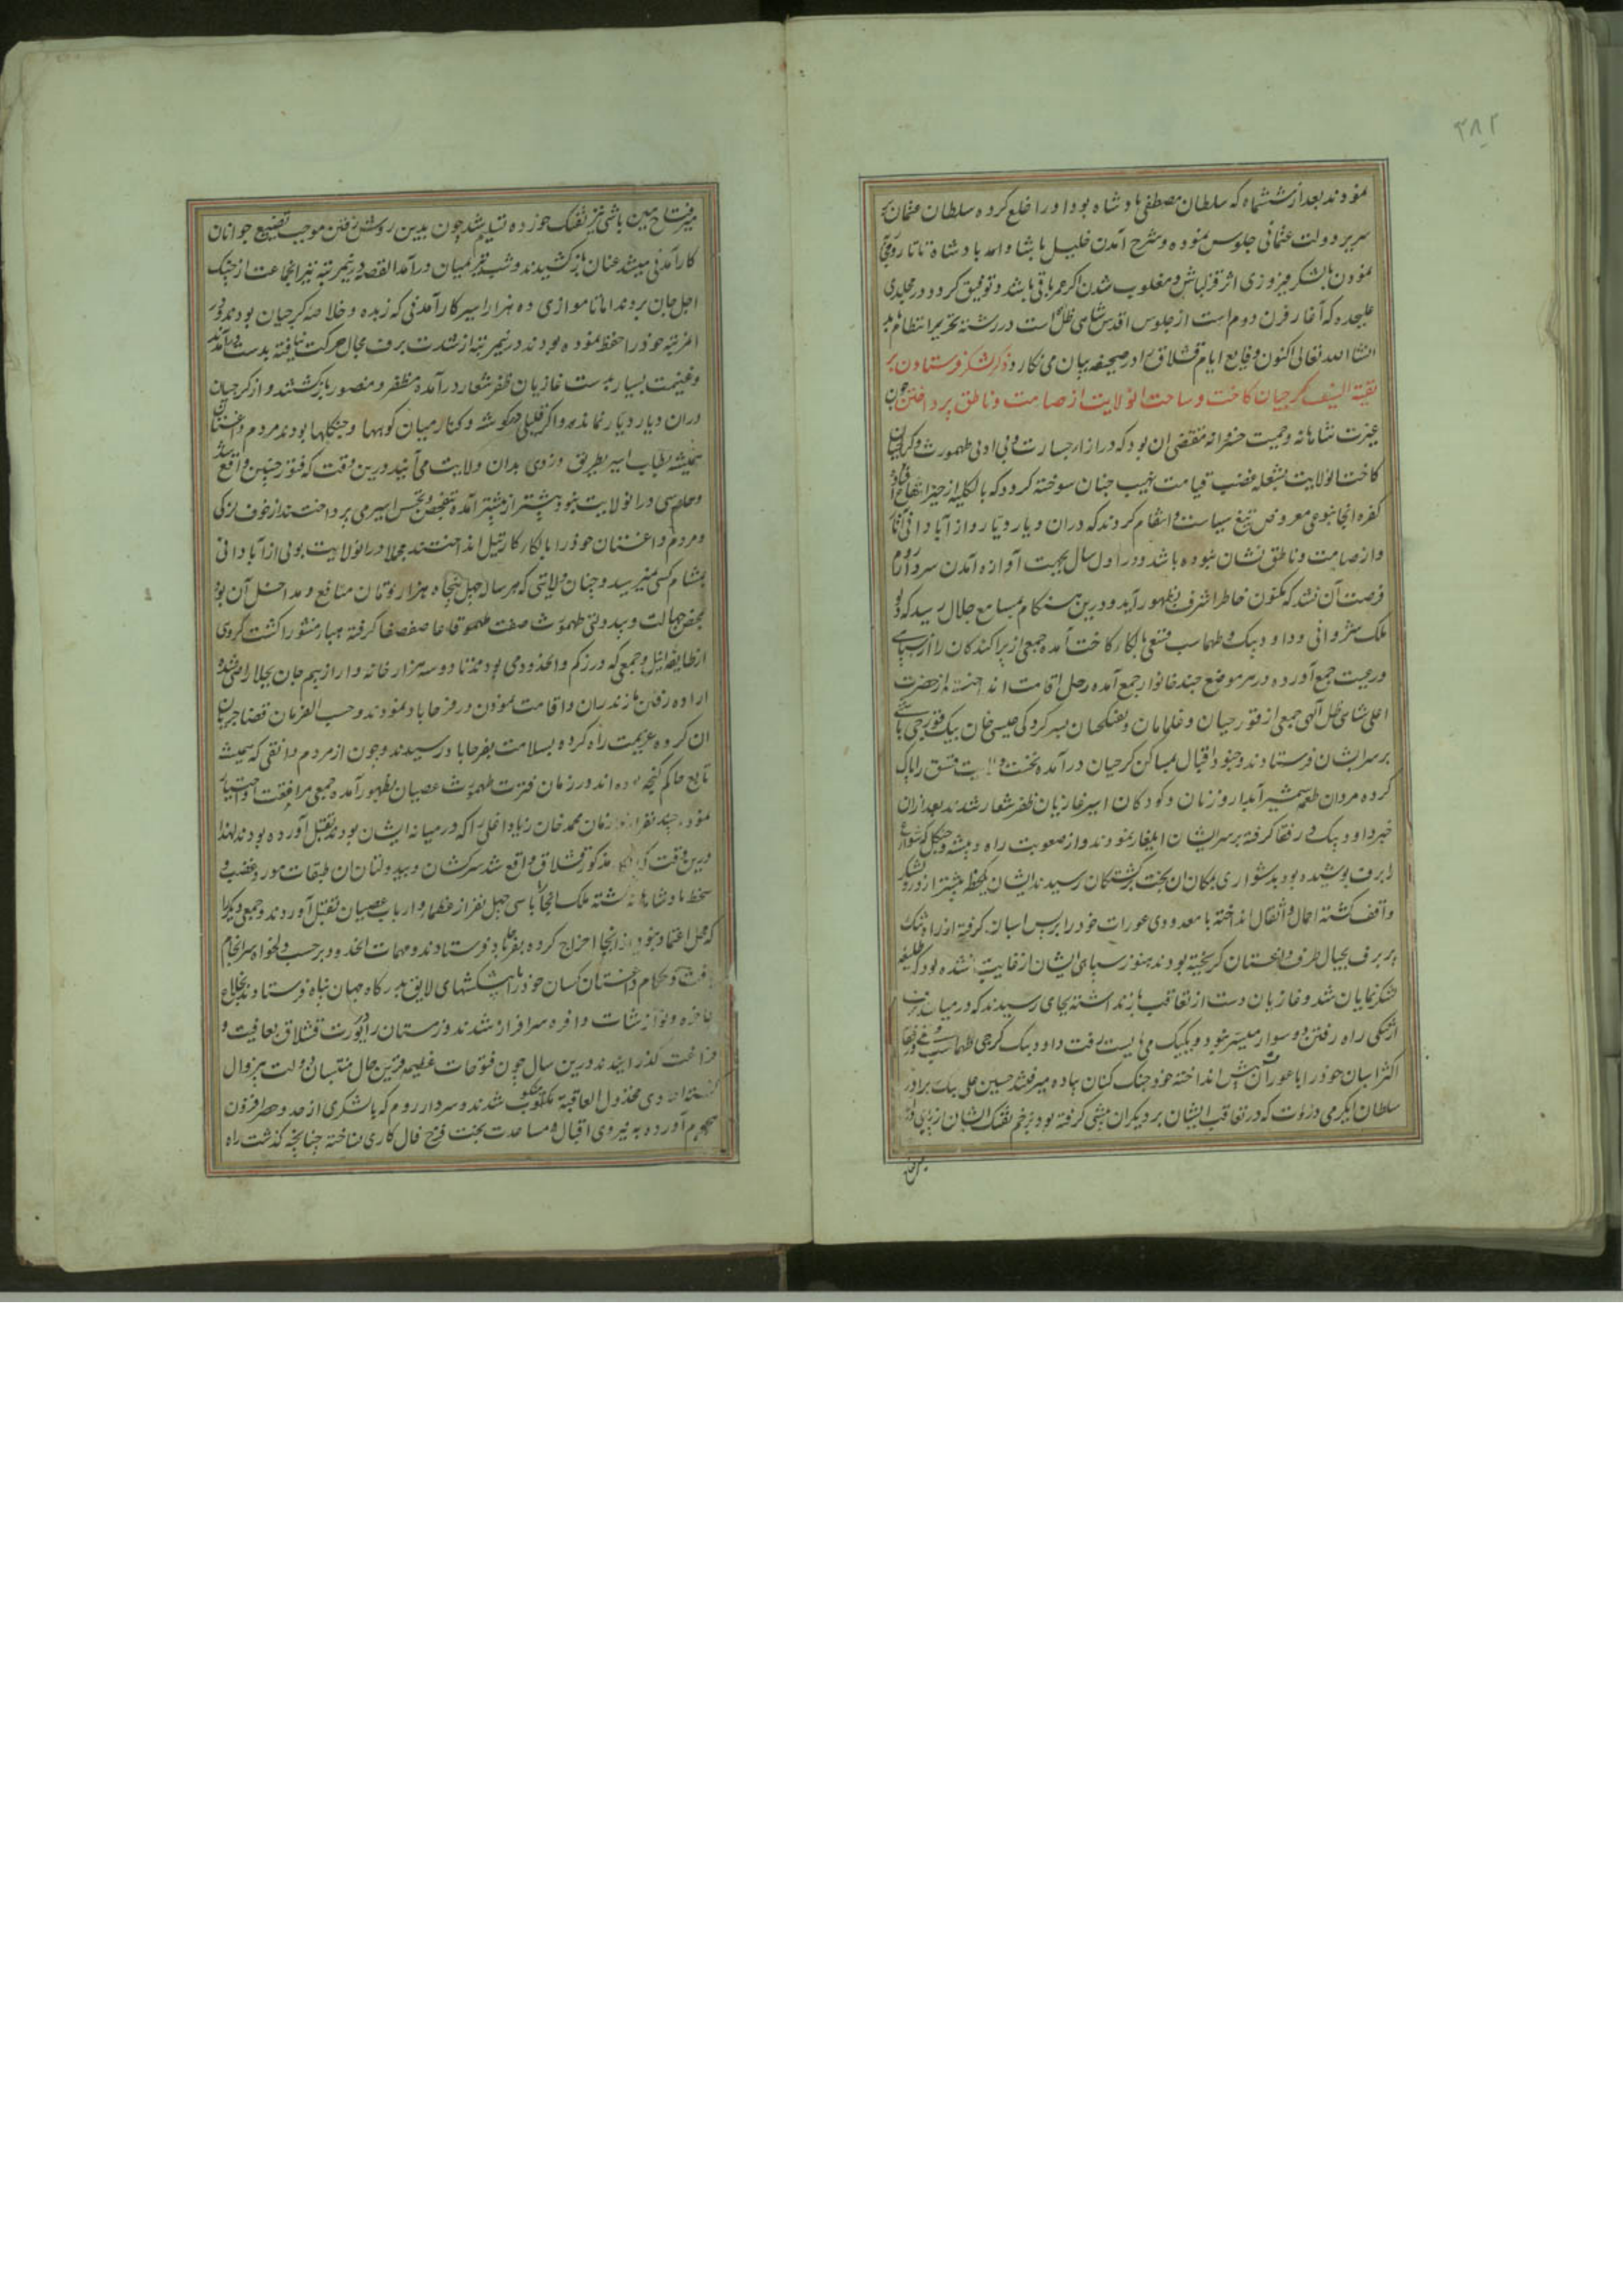 ۳۸۲
نمودند بعد از ششماه که سلطان مصطفی پادشاه بود او را خلع کرده سلطان عثمان بر
سریر دولت عثمانی جلوس نموده و شرح آمدن خلیل پاشا و امد پادشاه تاتار و رزم
نمودن با لشکر فیروزی اثر قزلباش و مغلوب شدن اگر عمر باقی باشد و توفیق کردد در مجلدی
علیحده که آغاز قرن دوم است از جلوس اقدس شاهی ظل الله است در رشته تحریر انتظام یابد
انشا الله تعالی اکنون وقایع ایام قشلاق را در صحیفه بیان می نکارد ذکر لشکر فرستادن بر
بقیة السیف کرجیان کاخت و ساحت انولایت از صامت و ناطق پرداختن چون
غیرت شاهانه و حمیت خسروانه مقتضی ان بود که در ازاء جسارت و بی ادبی طهمورث و کرجیان
کاخت انولایت بشعله غضب قیامت نهیب چنان سوخته کردد که بالکلیه از حیز انتفاع افتاده
کفره انجا بنوعی معروض تیغ سیاست و انتقام کردند که دران دیار دیار و از آبادانی آثار
و از صامت و ناطق نشان نبوده باشد و در اول سال بجهت آوازه آمدن سردار روم
فرصت آن نشد که مکنون خاطر اشرف بظهور آید و درین هنکام بمسامع جلال رسید که
ملک شروانی و داود بیک و طهماسب قشقی بالکار کاخت آمده جمعی از پراکندکان را از سپاهی
و رعیت جمع آورده در هر موضع چند خانوار جمع آمده رحل اقامت انداختند از حضرت
اعلی شاهی ظل آلهی جمعی از قورچیان و غلامان و تفنکچیان بسرکردکی عیسی خان بیک قورچی باشی
بر سر ایشان فرستادند و جنود اقبال بمساکن کرجیان درآمده نخست قشق را پاک
کرده مردان طعمه شمشیر آبدار و زنان و کودکان اسیر غازیان ظفر شعار شدند بعد ازان
خبر داود بیک و رفقا کرفته بر سر ایشان ایلغار نمودند و از صعوبت راه و بیشه و جنکل که شوارع
از برف پوشیده بود بدشواری بمکان ان بخت برکشتکان رسیدند ایشان یک لحظه پیشتر از ورود لشکر
واقف کشته احمال و اثقال انداخته با معدودی عورات خود را بر پس اسبان کرفته از راه تنک
پر برف بجبال طرف داغستان کریخته بودند هنوز سیاهی ایشان از غایبت نشده بود که طلیعه
لشکر نمایان شد و غازیان دست از تعاقب باز نداشته بجای رسیدند که در میان برف
از تنکی راه رفتن دو سوار میسر نبود و یکیک می بایست رفت داود بیک کرجی طهماسب قشقی و رفقا
اکثر اسبان خود را با عورات پیش انداخته خود جنک کنان پیاده میرفتند حسین علی بیک برادر
سلطان ایکرمی دورت که در تعاقب ایشان بر دیکران پیشی کرفته بود بزخم تفنک ایشان از پای افتاد
میرفتاح مین باشی نیز تفنک خورده تسلیم شد چون بدین روش رفتن موجب تضییع جوانان
کارآمدنی میشد عنان باز کشیدند و شب نیز بمیان درآمد القصه درینمرتبه نیز انجماعت از چنک
اجل جان بردند اما تا موازی ده هزار اسیر کارآمدنی که زبده و خلاصه کرجیان بودند و در
انمرتبه خود را حفظ نموده بودند درینمرتبه از شدت برف مجال حرکت نیافته بدست درآمدند
و غنیمت بسیار بدست غازیان ظفر شعار درآمده مظفر و منصور بازکشتند و از کرجیان
دران دیار دیار نماند و اکر قلیلی در کوشه و کنار میان کوهها و جنکلها بودند مردم داغستان
همیشه بطلب اسیر بطریق دزدی بدان ولایت می آیند درین وقت که فتور چنین واقع شد
و حارسی در انولایت نبود پیشتر از پیشتر آمده بتفحص و تجسس اسیر می پرداختند از خوف لزکی
و مردم داغستان خود را بالکار کارتیل انداختند مجملا در انولایت بوئی از آبادانی
بمشام کسی نمیرسید و چنان ولایتی که هر ساله چهل پنجاه هزار تومان منافع و مداخل آن بود
بمحض جهالت و بیدولتی طهمورث صفت طهمو قاعا صفصفا کرفته هباء منثورا کشت کروهی
از طایفه ایل و جمعی که در زکم و انحدود می بودند تا دو سه هزار خانه وار از بیم جان بجلا راضی شده
اراده رفتن مازندران و اقامت نمودن در فرحاباد نمودند و حسب الفرمان قضا جریان
ان کروه عزیمت راه کرده بسلامت بفرحاباد رسیدند و چون از مردم دانقی که همیشه
تابع حاکم کنجه بوده اند در زمان فترت طهمورث عصیان بظهور آمده جمعی مرافقت اختیار
نموده چند نفر از ملازمان محمد خان زیاد اغلی را که در میانه ایشان بودند بقتل آورده بودند لهذا
درین وقت که مذکور قشلاق واقع شد سرکشان و بیدولتان ان طبقات مورد غضب و
سخط پادشاهانه کشته ملک انجا را با سی چهل نفر از عظما و ارباب عصیان بقتل آوردند و جمعی دیکر را
که محل اعتماد نبودند از انجا اخراج کرده بفرحاباد فرستادند و مهمات انحدود بر حسب دلخواه سرانجام
یافت و حکام داغستان کسان خود را با پیشکشهای لایق بدرکاه جهان پناه فرستادند بخلاع
فاخره و نوازشات وافره سرافراز شدند و زمستان را در یورت قشلاق بعافیت و
فراغت کذرانیدند و درین سال چون فتوحات عظیمه قرین حال منتسبان دولت بیزوال
کشته اعادی مخذول العاقبة منکوب شدند و سردار روم که با لشکری از حد و حصر افزون
هجوم آورده به نیروی اقبال و مساعدت بخت فرخ فال کاری نساخته چنانچه کذشت راه